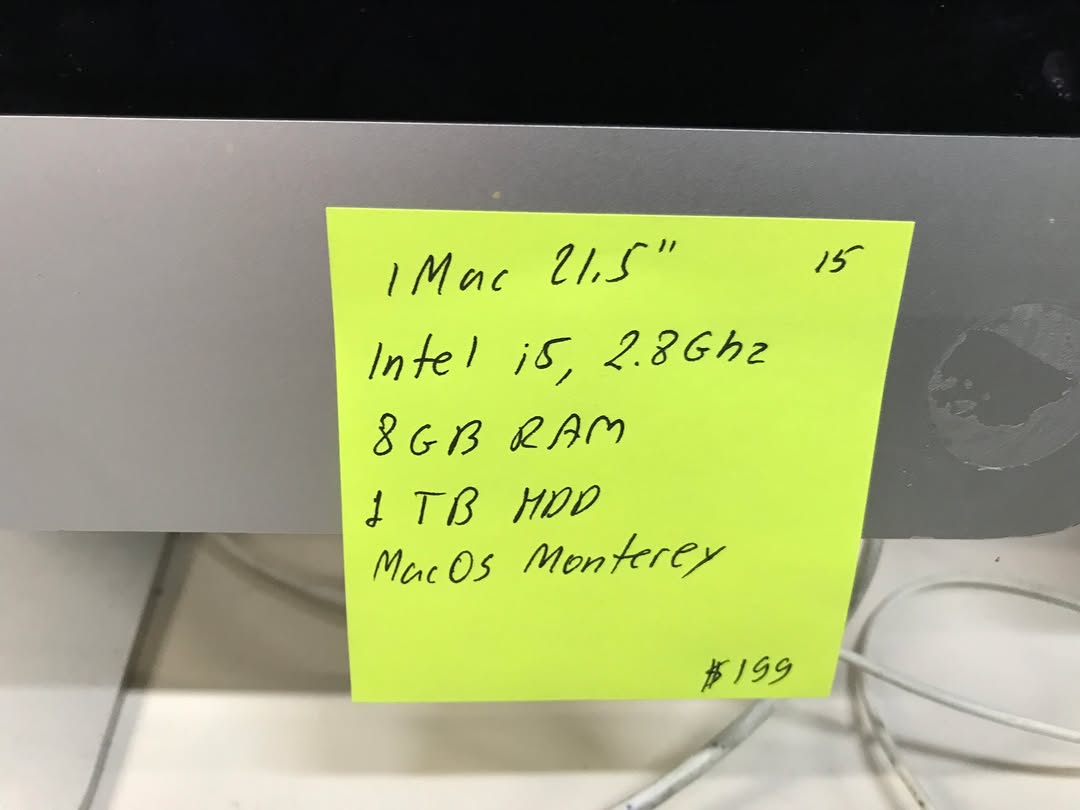 iMac 21.5" 15
Intel i5, 2.8Ghz
8GB RAM
1 TB HDD
MacOs Monterey
$199